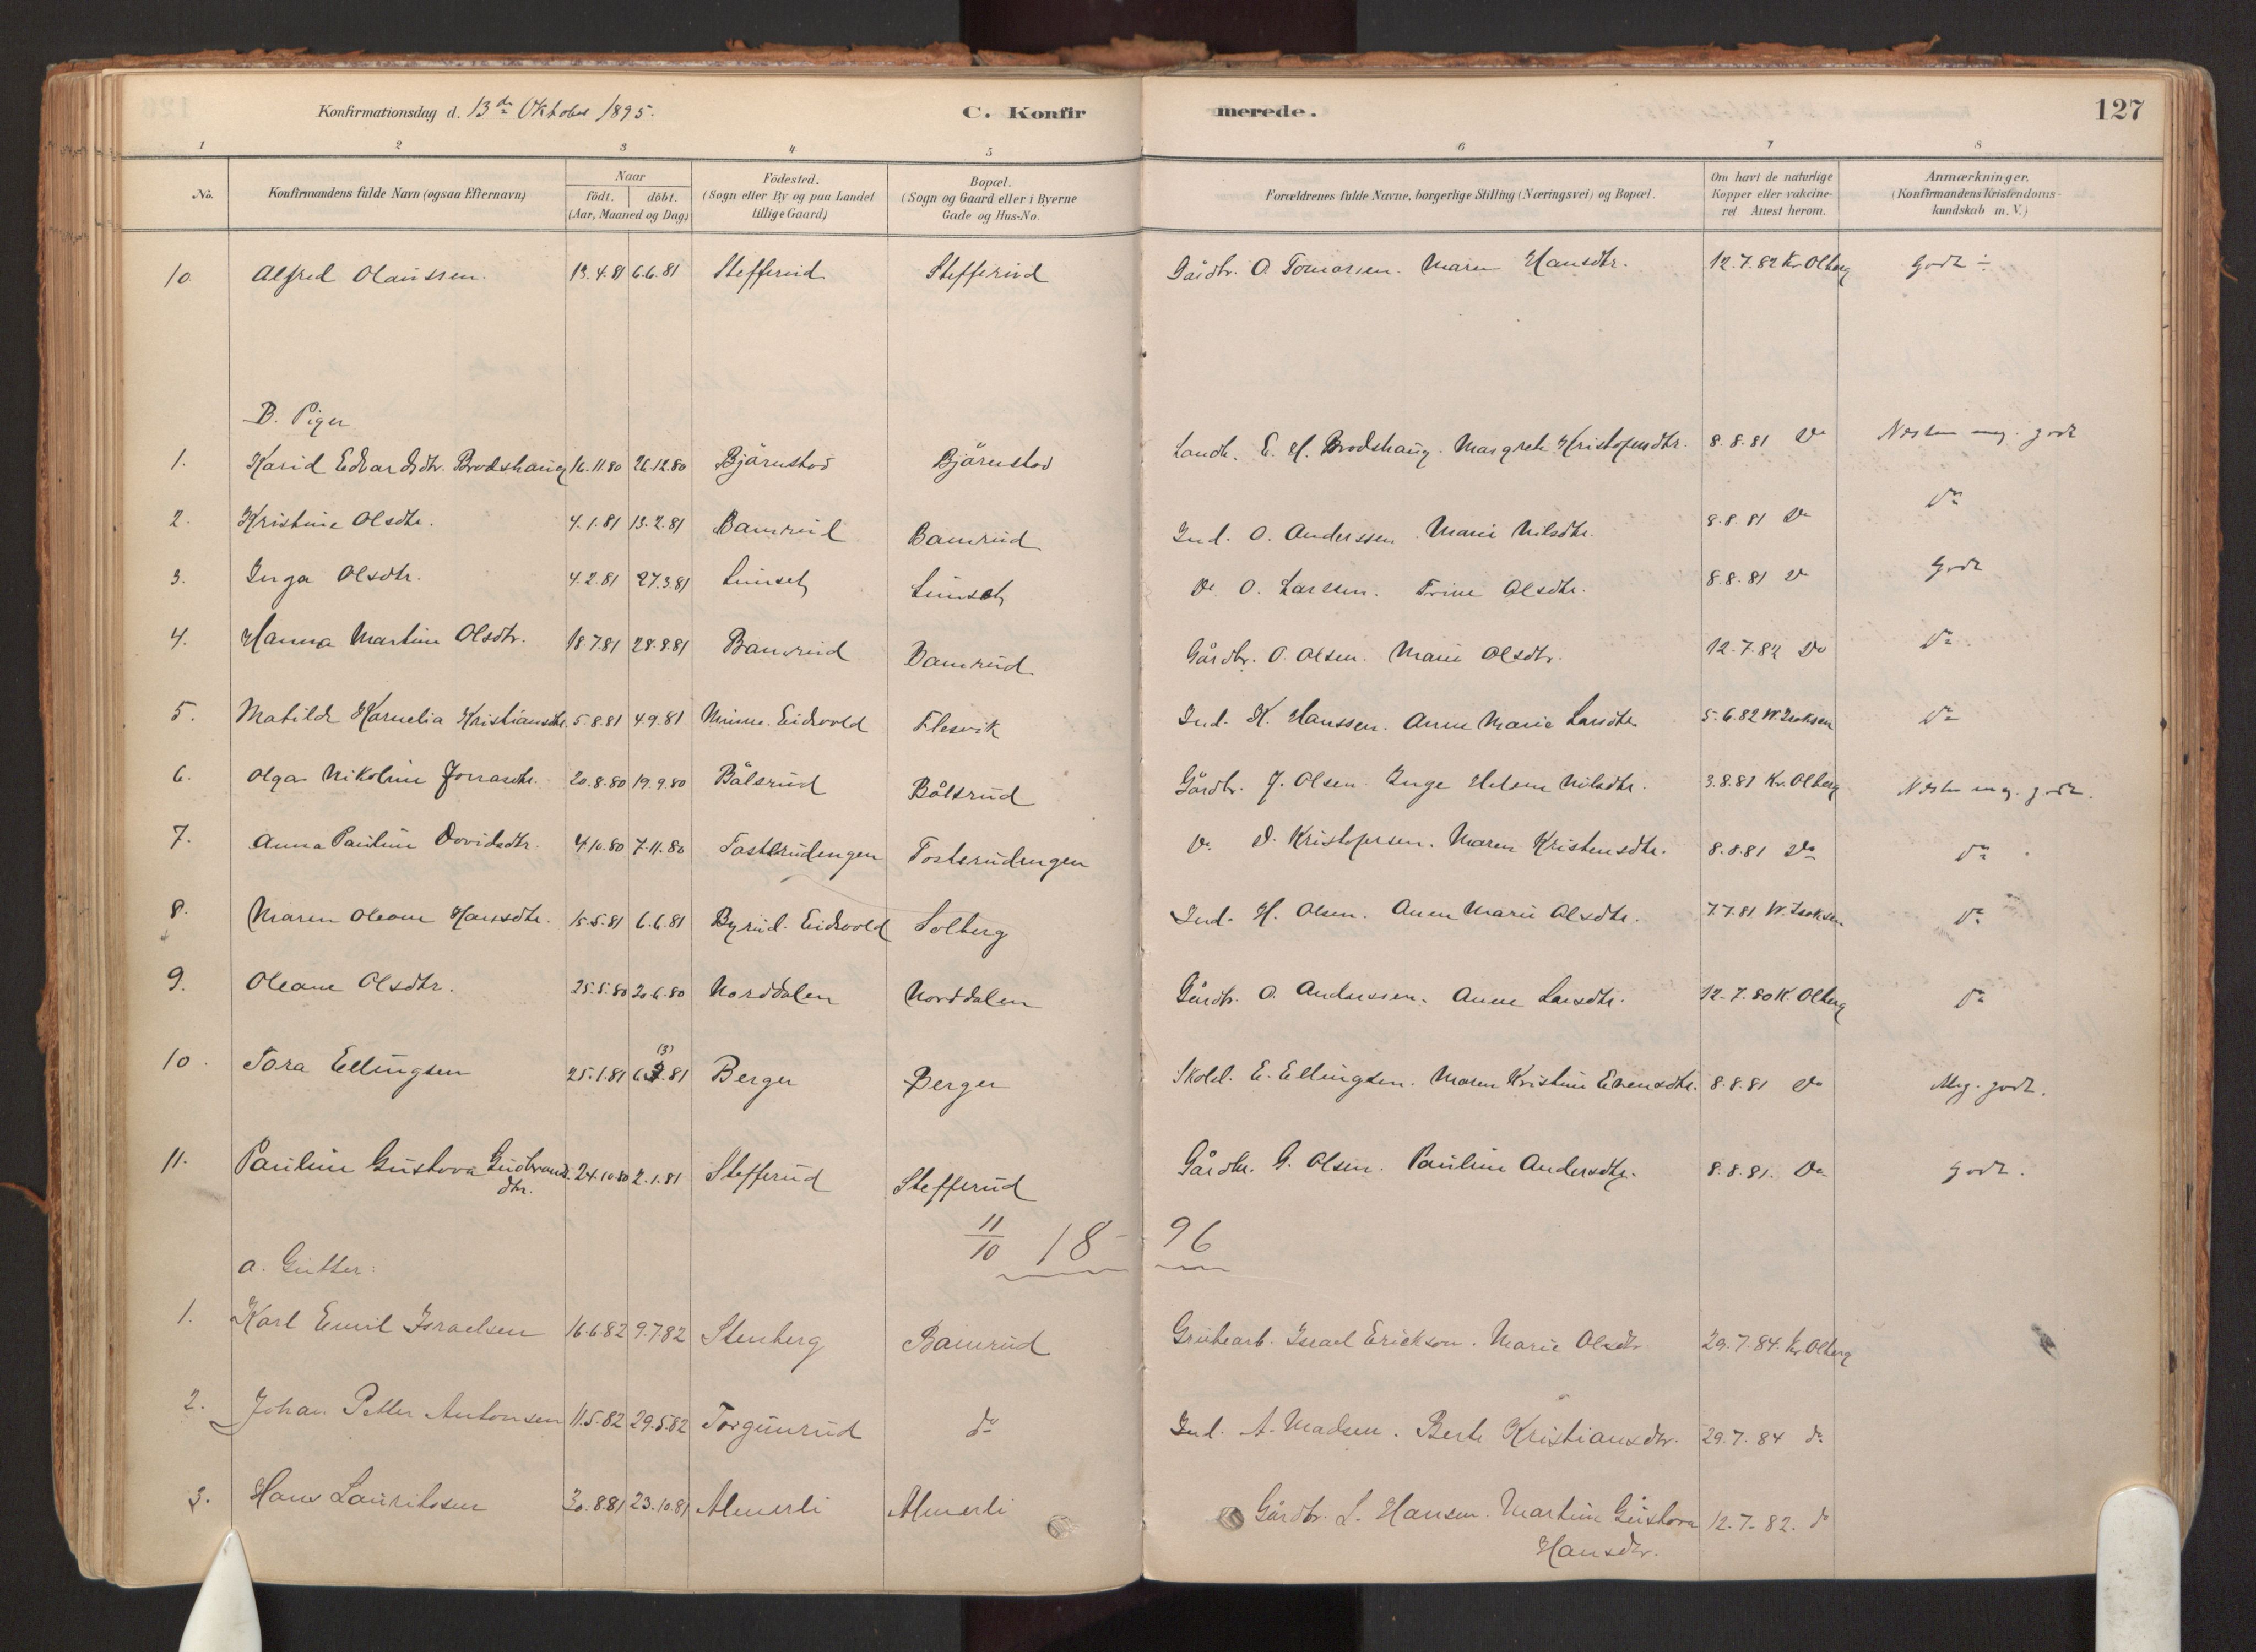 Konfirmationsdag d. 13de Oktober 1895. C. Konfirmerede. 127
1 2 3 4 5 6 7 8
No. Konfirmandens fulde Navn (ogsaa Efternavn) Naar födt. döbt. (Aar, Maaned og Dag) Födested. (Sogn eller By og paa Landet tillige Gaard) Bopæl. (Sogn og Gaard eller i Byerne Gade og Hus-No. Forældrenes fulde Navne, borgerlige Stilling (Næringsvei) og Bopæl. Om havt de naturlige Kopper eller vakcineret Attest herom. Anmærkninger. (Konfirmandens Kristendomskundskab m. V.)
10. Alfred Olaussen. 13.4.81 6.6.81 Stefferud Stefferud Gårdbr. O. Tomassen. Maren Hansdtr. 12.7.82 Kr. Olberg Godt ÷
B. Piger
1. Karid Edvardsdtr. Brodshaug 16.11.80 26.12.80 Bjärnstad Bjärnstad Landh. E. H. Brodshaug. Margrete Kristofersdtr. 8.8.81 Do Næsten meg. godt
2. Kristine Olsdtr. 4.1.81 13.2.81 Bamrud Bamrud Ind. O. Anderssen. Marie Nilsdtr. 8.8.81 Do Do
3. Inga Olsdtr. 4.2.81 27.3.81 Lunset Lunset Do O. Larssen. Trine Olsdtr. 8.8.81 Do Godt
4. Hanna Martine Olsdtr. 18.7.81 28.8.81 Bamrud Bamrud Gårdbr. O. Olsen. Marie Olsdtr. 12.7.82 Do Do
5. Matilde Kornelia Kristiansdtr. 5.8.81 4.9.81 Minne. Eidsvold Flesvik Ind. K. Hanssen. Anne Marie Larsdtr. 5.6.82 W. Isaksen Do
6. Olga Nikoline Jonasdtr. 20.8.80 19.9.80 Bålsrud Bålsrud Gårdbr. J. Olsen. Inge Helene Nilsdtr. 3.8.81 Kr. Olberg Næsten meg. godt.
7. Anna Pauline Davidsdtr. 4.10.80 7.11.80 Tosterudengen Tosterudengen Do D. Kristofersen. Maren Kristensdtr. 8.8.81 Do Do
8. Maren Oleane Hansdtr. 15.5.81 6.6.81 Byrud. Eidsvold Solberg Ind. H. Olsen. Anne Marie Olsdtr. 7.7.81 W. Isaksen Do
9. Oleane Olsdtr. 25.5.80 20.6.80 Norddalen Norddalen Gårdb. O. Anderssen. Anne Larsdtr. 12.7.80 K. Olberg Do
10. Tora Ellingsen 25.1.81 6.3.81 (3) Berger Berger Skolel. E. Ellingsen. Maren Kristine Evensdtr. 8.8.81 Do Meg. godt.
11. Pauline Gustava Gudbrandsdtr. 24.10.80 2.1.81 Stefferud Stefferud Gårdbr. G. Olsen. Pauline Andersdtr. 8.8.81. Do Godt.
11/10 18-96
a. Gutter:
1. Karl Emil Israelsen 16.6.82 9.7.82 Stenberg Bamrud Grubearb. Israel Erickson. Marie Olsdtr 29.7.84. Kr. Olberg
2. Johan Petter Antonsen 11.5.82 29.5.82 Torgunrud do Ind. A. Madsen. Berte Kristiansdtr. 29.7.84 do
3. Hans Lauritssen 30.8.81 23.10.81 Almerli Almerli Gårdbr. L. Hansen. Martine Gustava Hansdtr. 12.7.82. do